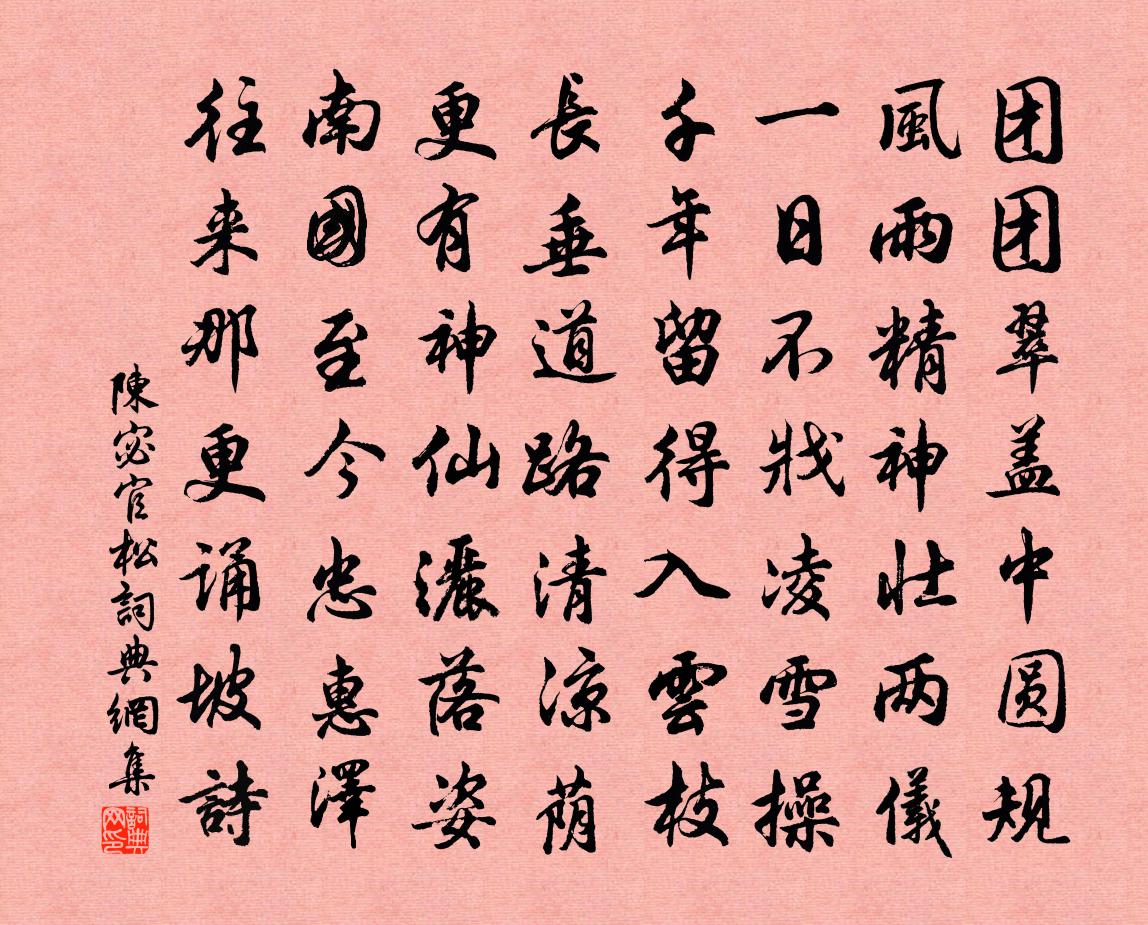 团团翠盖中圆规
風雨精神壮两儀
一日不戕凌雪操
千年留得入雲枝
長垂道路清涼荫
更有神仙灑落姿
南國至今忠惠澤
往来那更诵坡詩
陳宓官松詞典網集
詞典网印